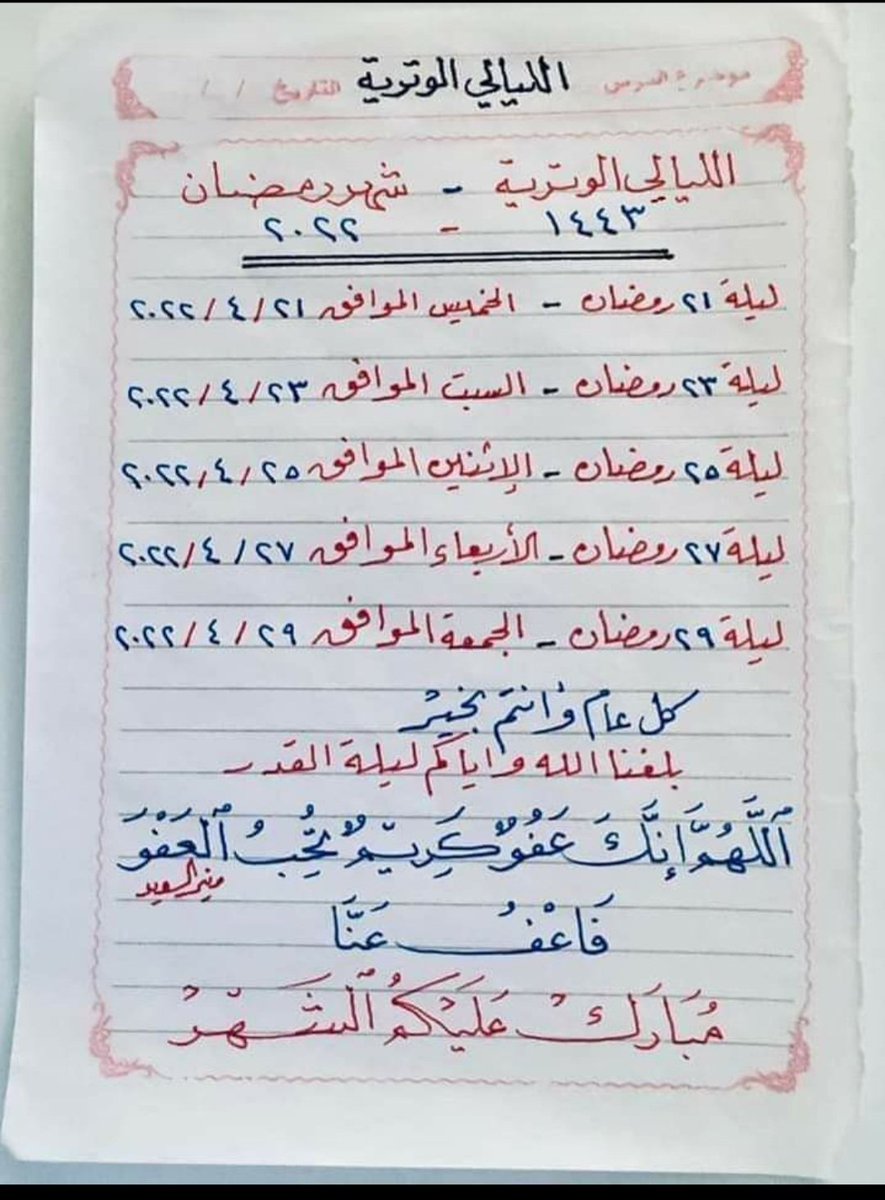 موضوع الدرس الليالي الوترية التاريخ / /
الليالي الوترية - شهر رمضان
١٤٤٣ - ٢٠٢٢
ليلة ٢١ رمضان - الخميس الموافق ٢٠٢٢/٤/٢١
ليلة ٢٣ رمضان - السبت الموافق ٢٠٢٢/٤/٢٣
ليلة ٢٥ رمضان - الإثنين الموافق ٢٠٢٢/٤/٢٥
ليلة ٢٧ رمضان - الأربعاء الموافق ٢٠٢٢/٤/٢٧
ليلة ٢٩ رمضان - الجمعة الموافق ٢٠٢٢/٤/٢٩
كل عام وأنتم بخير
بلغنا الله واياكم ليلة القدر
اَللَّهُمَّ إِنَّكَ عَفُوٌّ كَرِيمٌ تُحِبُّ الْعَفْوَ
منير السعيد
فَاعْفُ عَنَّا
مُبَارَكْ عَلَيْكُمُ الشَّهْرْ